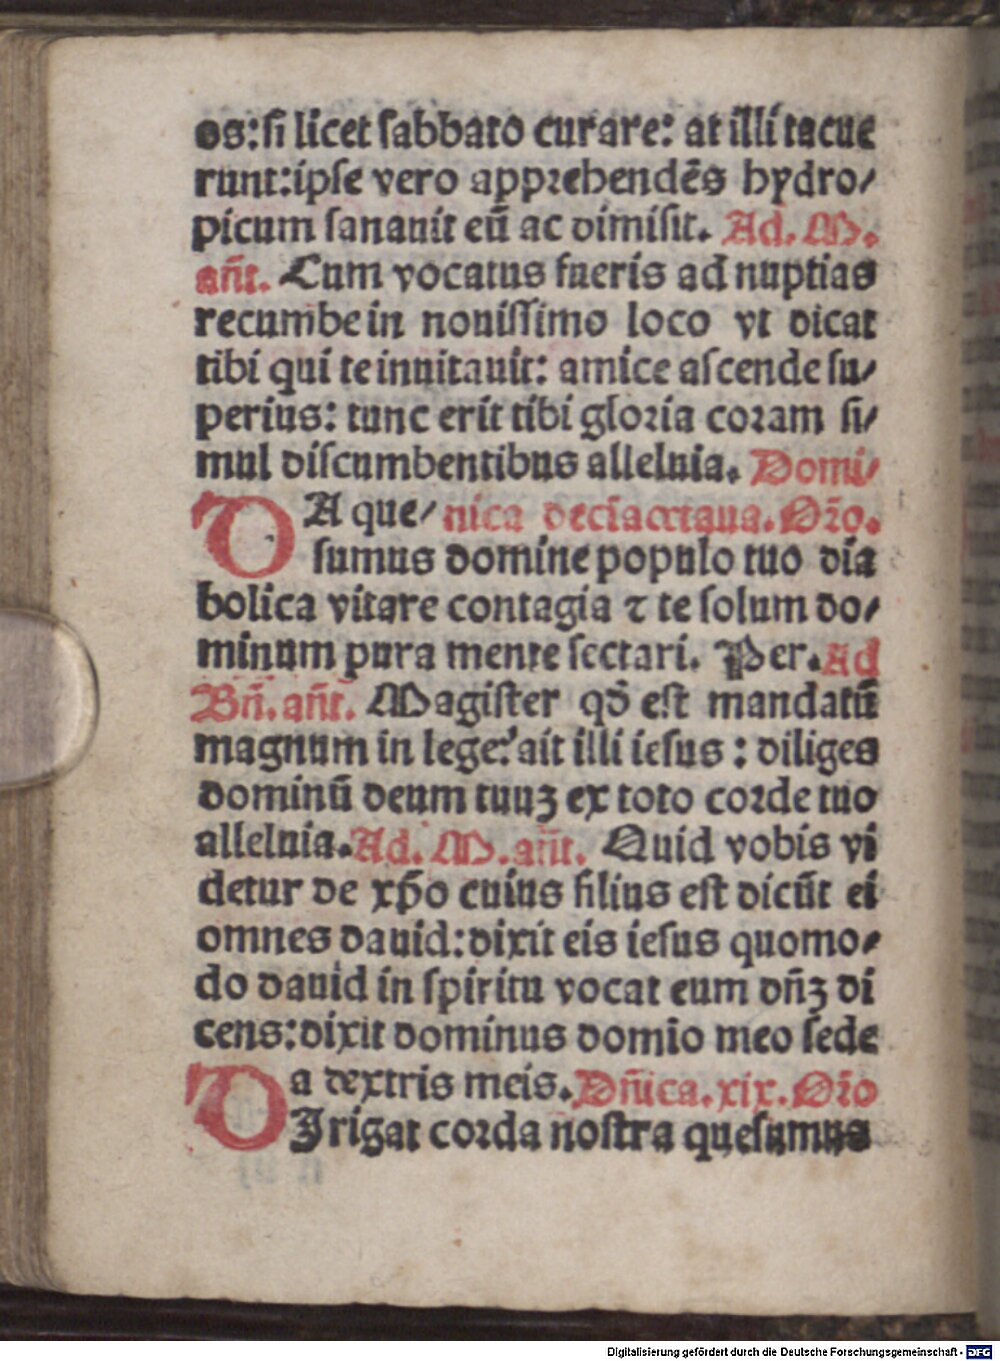 os: si licet sabbato curare: at illi tacue
runt: ipse vero apprehendẽs hydro/
picum sanauit eũ ac dimisit. Ad. M.
añt. Cum vocatus fueris ad nuptias
recumbe in nouissimo loco vt dicat
tibi qui te inuitauit: amice ascende su/
perius: tunc erit tibi gloria coram si/
mul discumbentibus alleluia. Domi/
DA que/ nica deciaoctaua. Oꝛ̃o.
sumus domine populo tuo dia
bolica vitare contagia ⁊ te solum do/
minum pura mente sectari. Per. Ad
Bñ. añt. Magister qđ est mandatũ
magnum in lege? ait illi iesus: diliges
dominũ deum tuuꝫ ex toto corde tuo
alleluia. Ad. M. añt. Quid vobis vi
detur de xp̃o cuius filius est dicũt ei
omnes dauid: dixit eis iesus quomo/
do dauid in spiritu vocat eum dñꝫ di
cens: dixit dominus domio meo sede
a dextris meis. Dñica. xix. Oꝛ̃o
DIrigat corda nostra quesumus
Digitalisierung gefördert durch die Deutsche Forschungsgemeinschaft - DFG